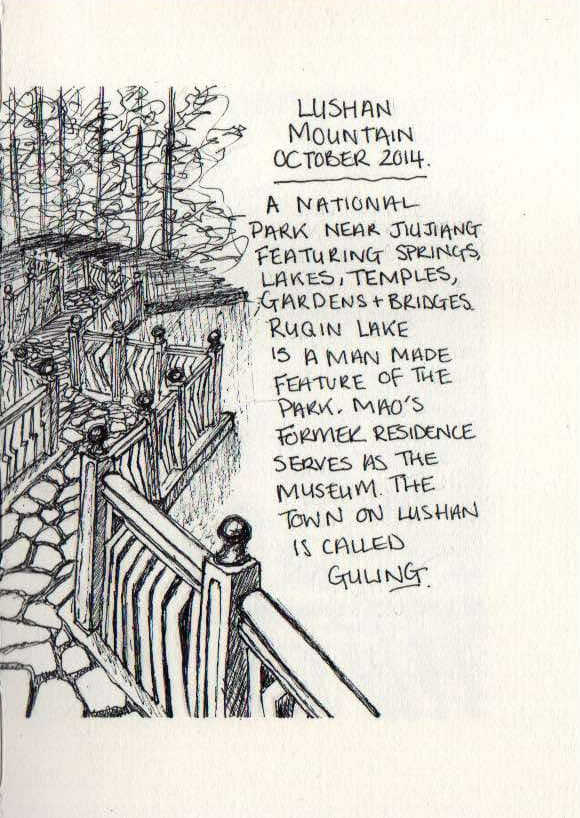 LUSHAN
MOUNTAIN
OCTOBER 2014.
A NATIONAL
PARK NEAR JIUJIANG
FEATURING SPRINGS,
LAKES, TEMPLES,
GARDENS + BRIDGES.
RUQIN LAKE
IS A MAN MADE
FEATURE OF THE
PARK. MAO'S
FORMER RESIDENCE
SERVES AS THE
MUSEUM. THE
TOWN ON LUSHAN
IS CALLED
GULING.